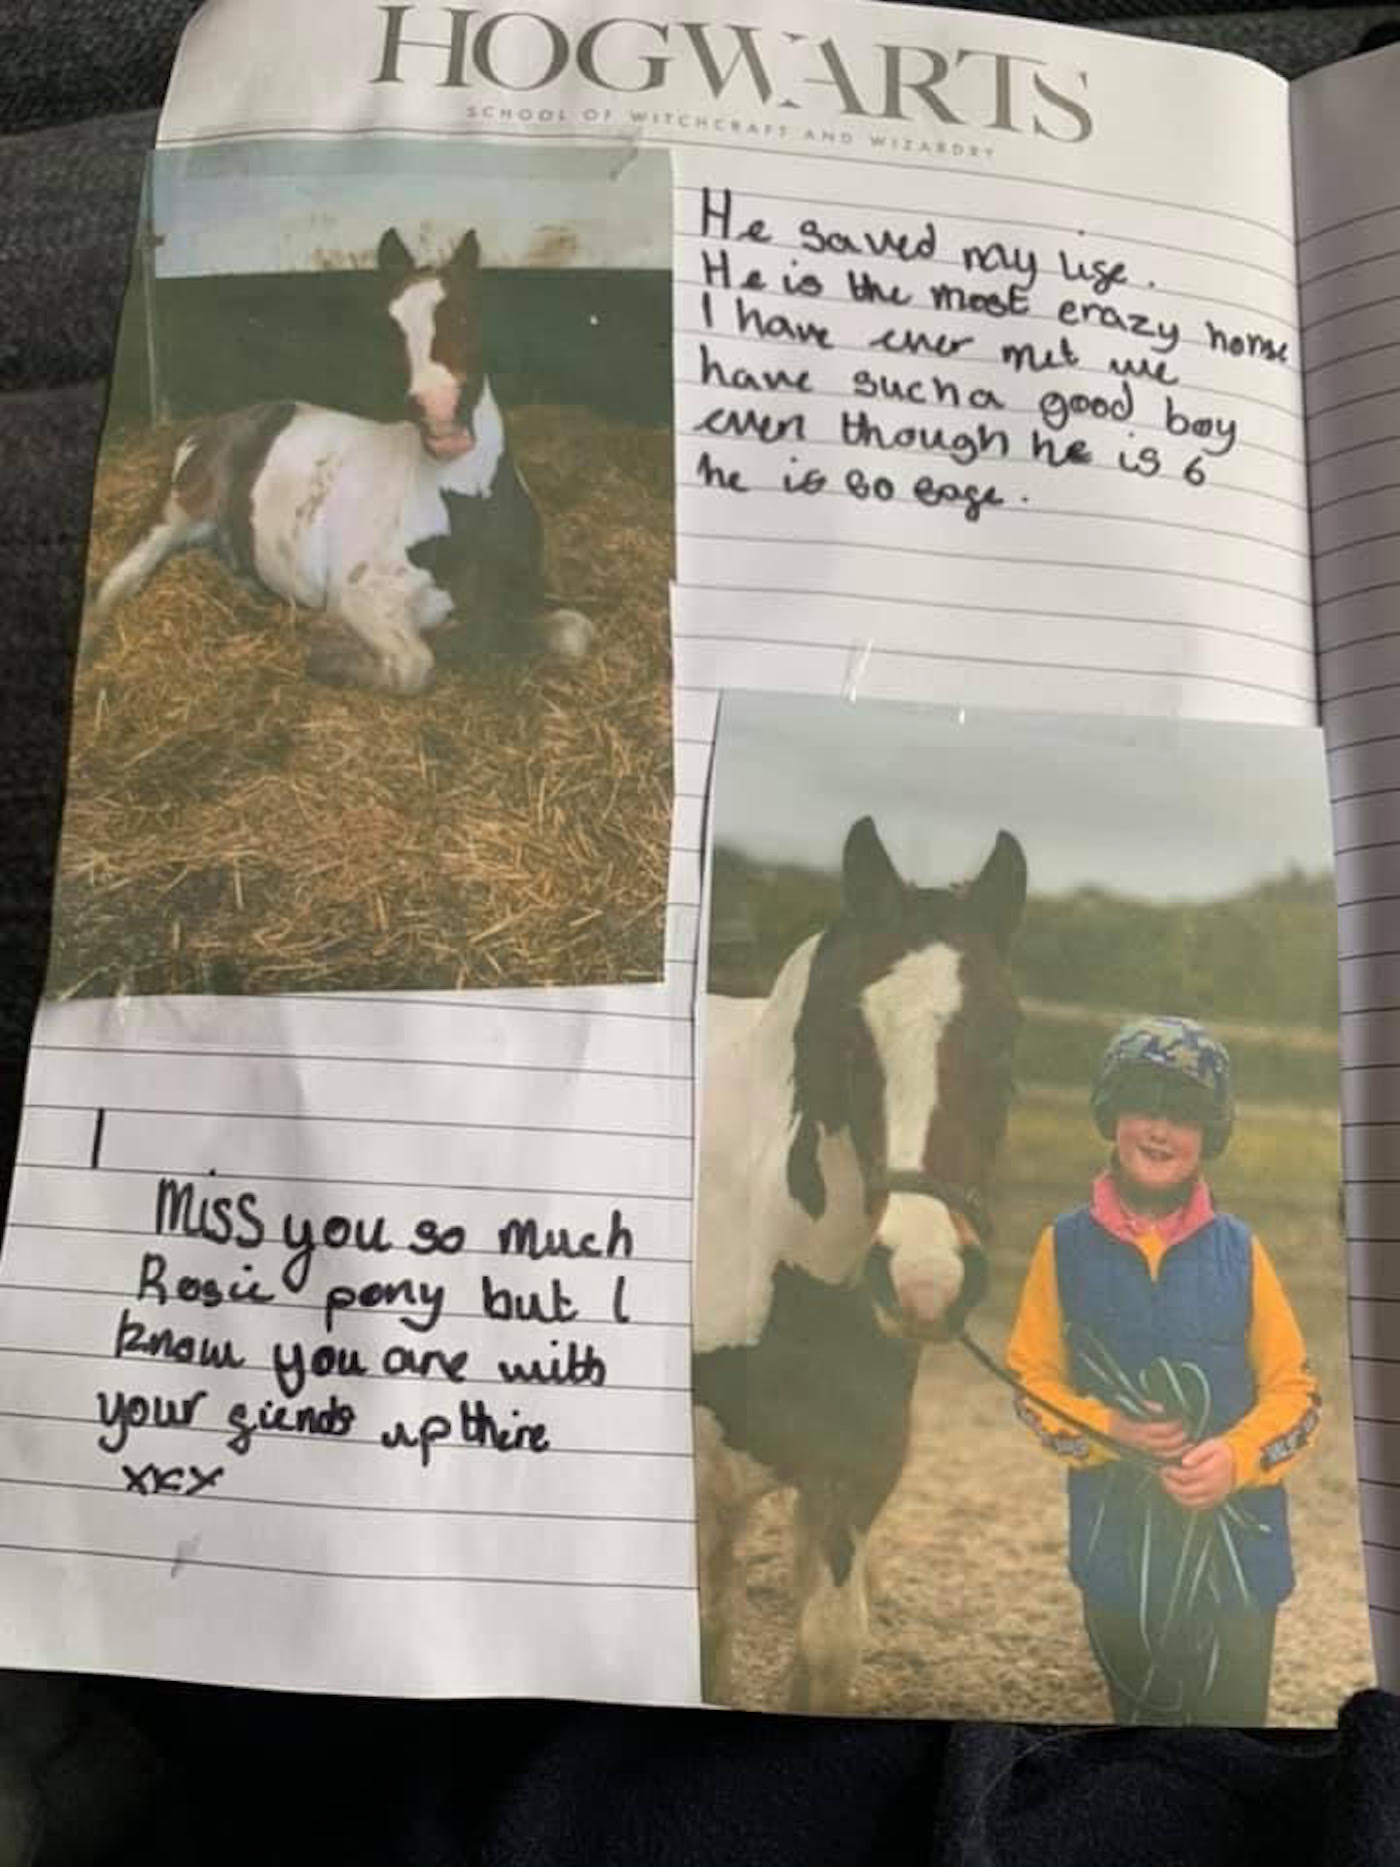 HOGWARTS
SCHOOL OF WITCHCRAFT AND WIZARDRY
He saved my lise.
He is the most crazy horse
I have ever met we
have such a good boy
even though he is 6
he is so sage.
I
Miss you so much
Rosie pony but I
know you are with
your giends up there
xxx